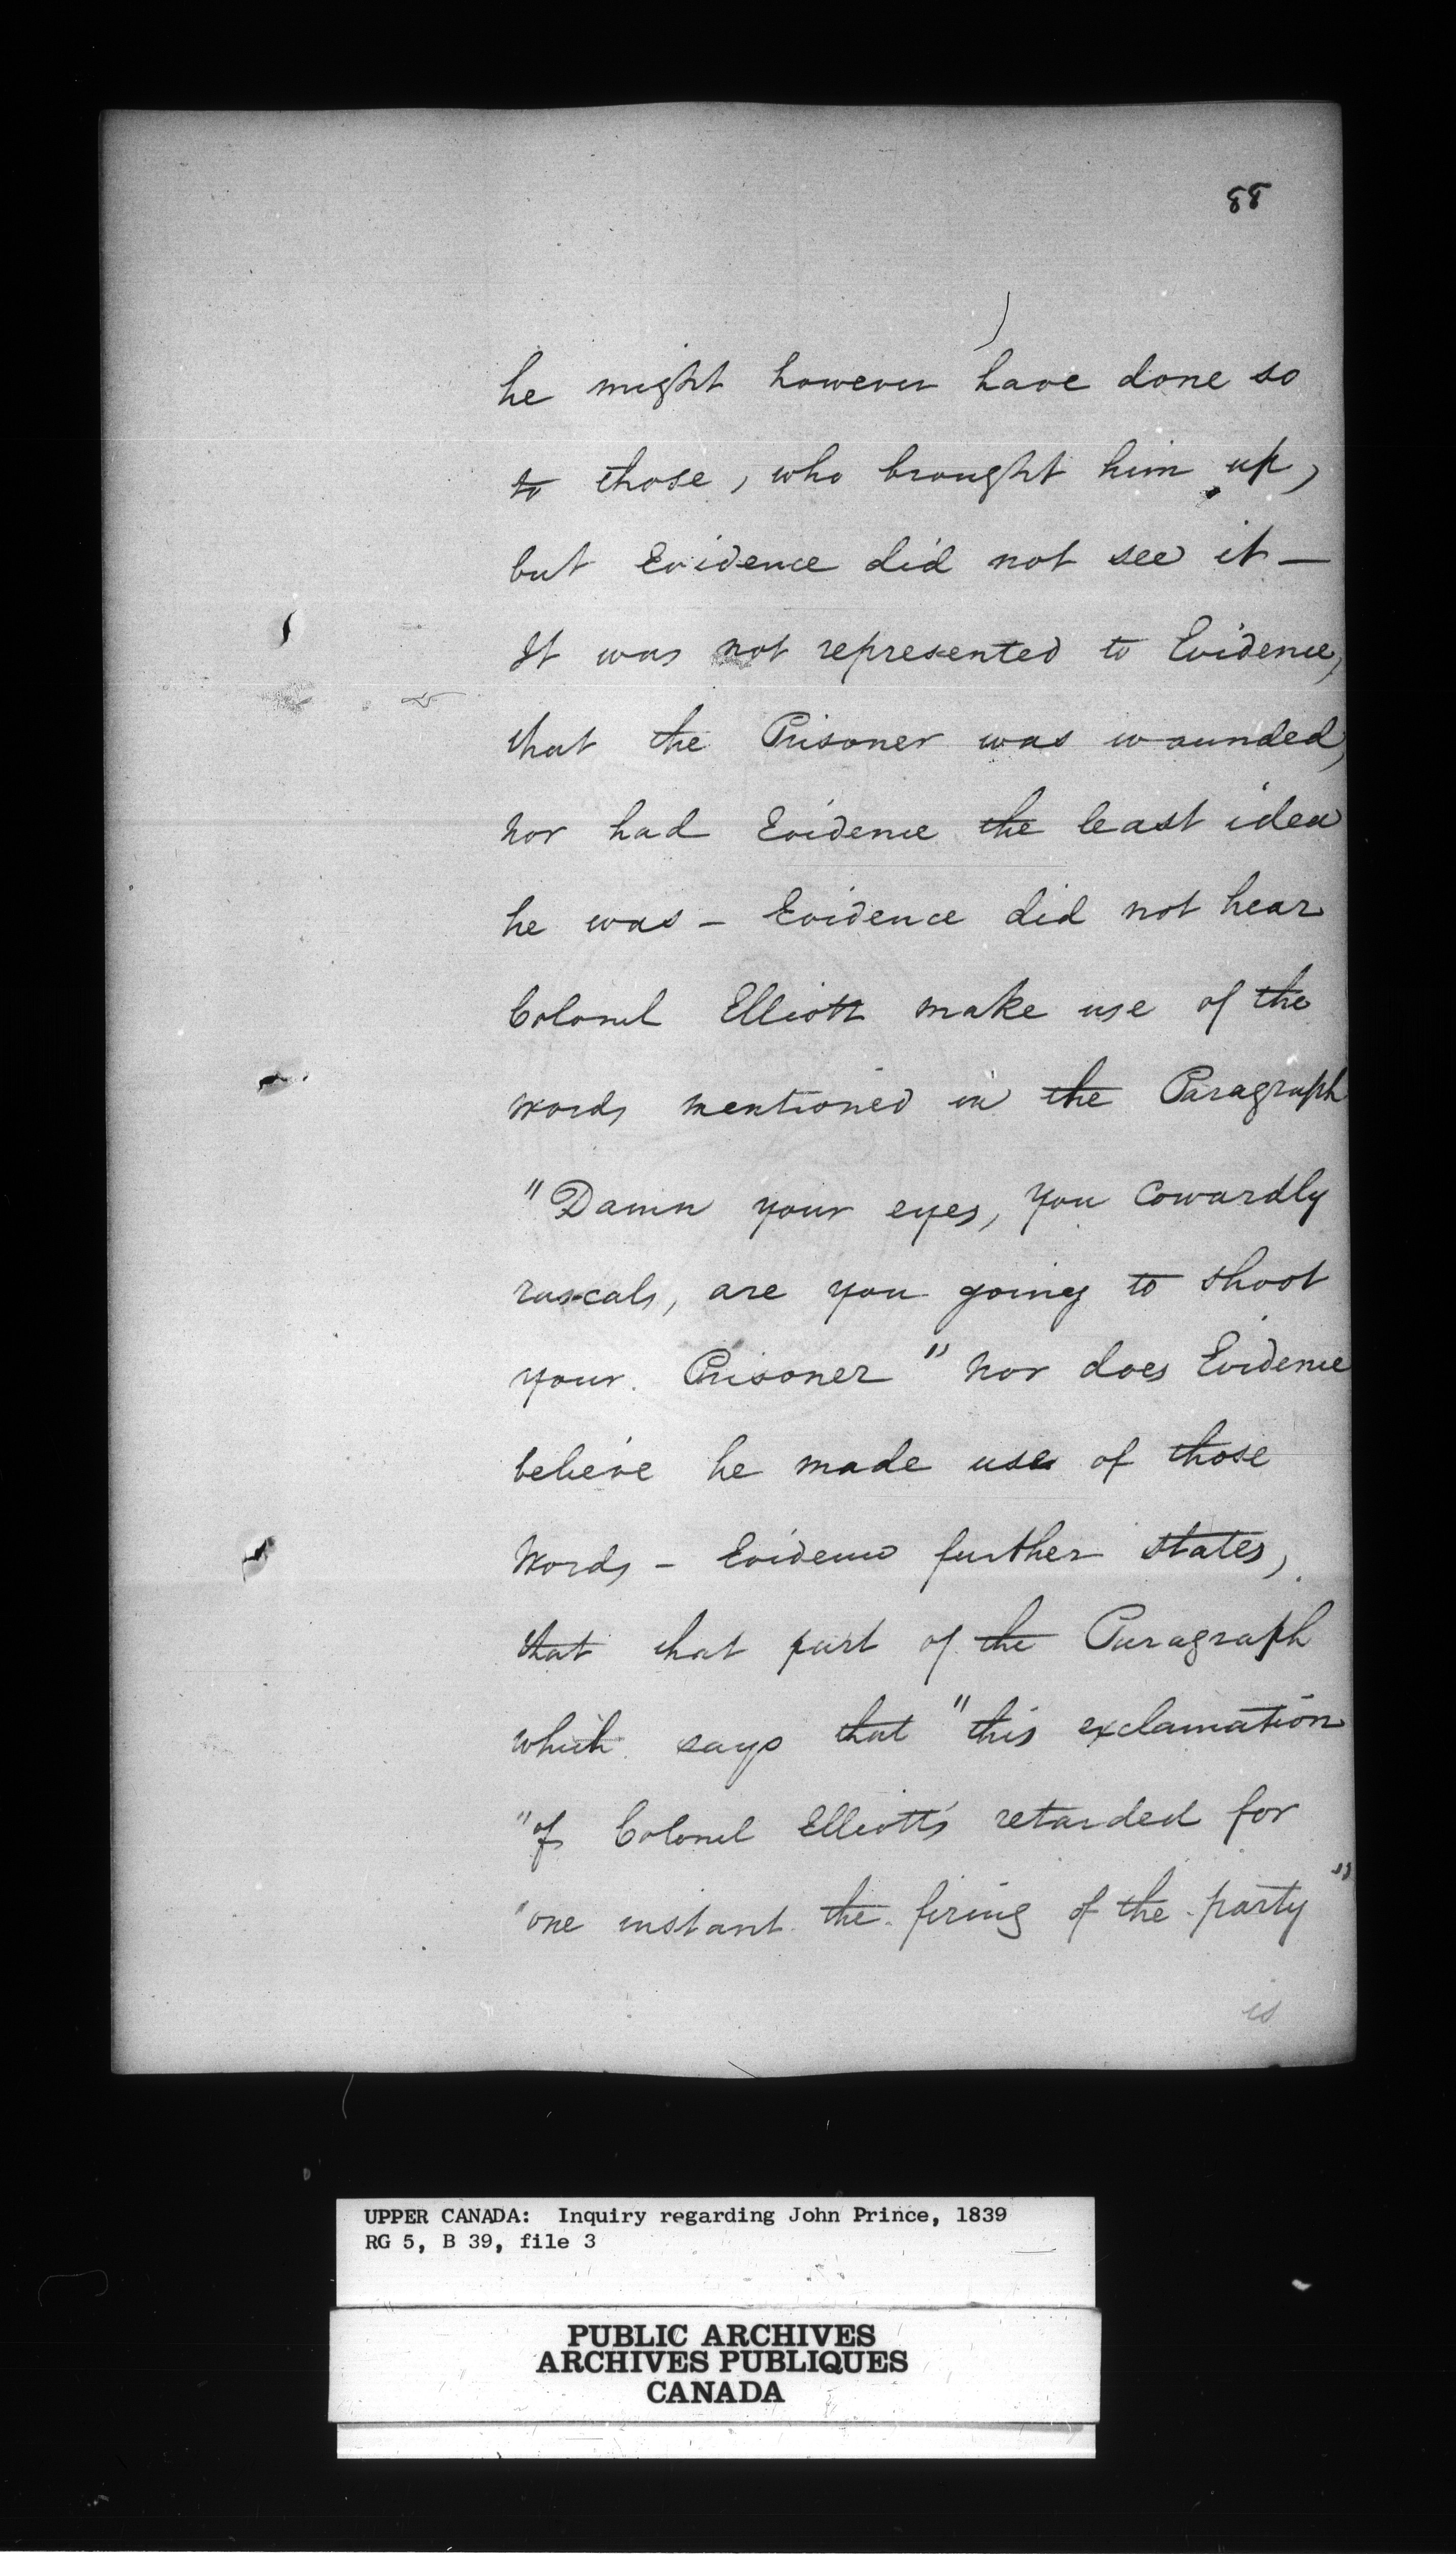 88
he might however have done so
to those, who brought him up,
but Evidence did not see it —
It was not represented to Evidence,
that the Prisoner was wounded,
nor had Evidence the least idea
he was — Evidence did not hear
Colonel Elliott make use of the
words mentioned in the Paragraph
"Damn your eyes, you Cowardly
rascals, are you going to shoot
your Prisoner" nor does Evidence
believe he made use of those
words — Evidence further states,
that that part of the Paragraph
which says that "this exclamation
"of Colonel Elliott's retarded for
"one instant the firing of the party"
is
UPPER CANADA: Inquiry regarding John Prince, 1839
RG 5, B 39, file 3
PUBLIC ARCHIVES
ARCHIVES PUBLIQUES
CANADA